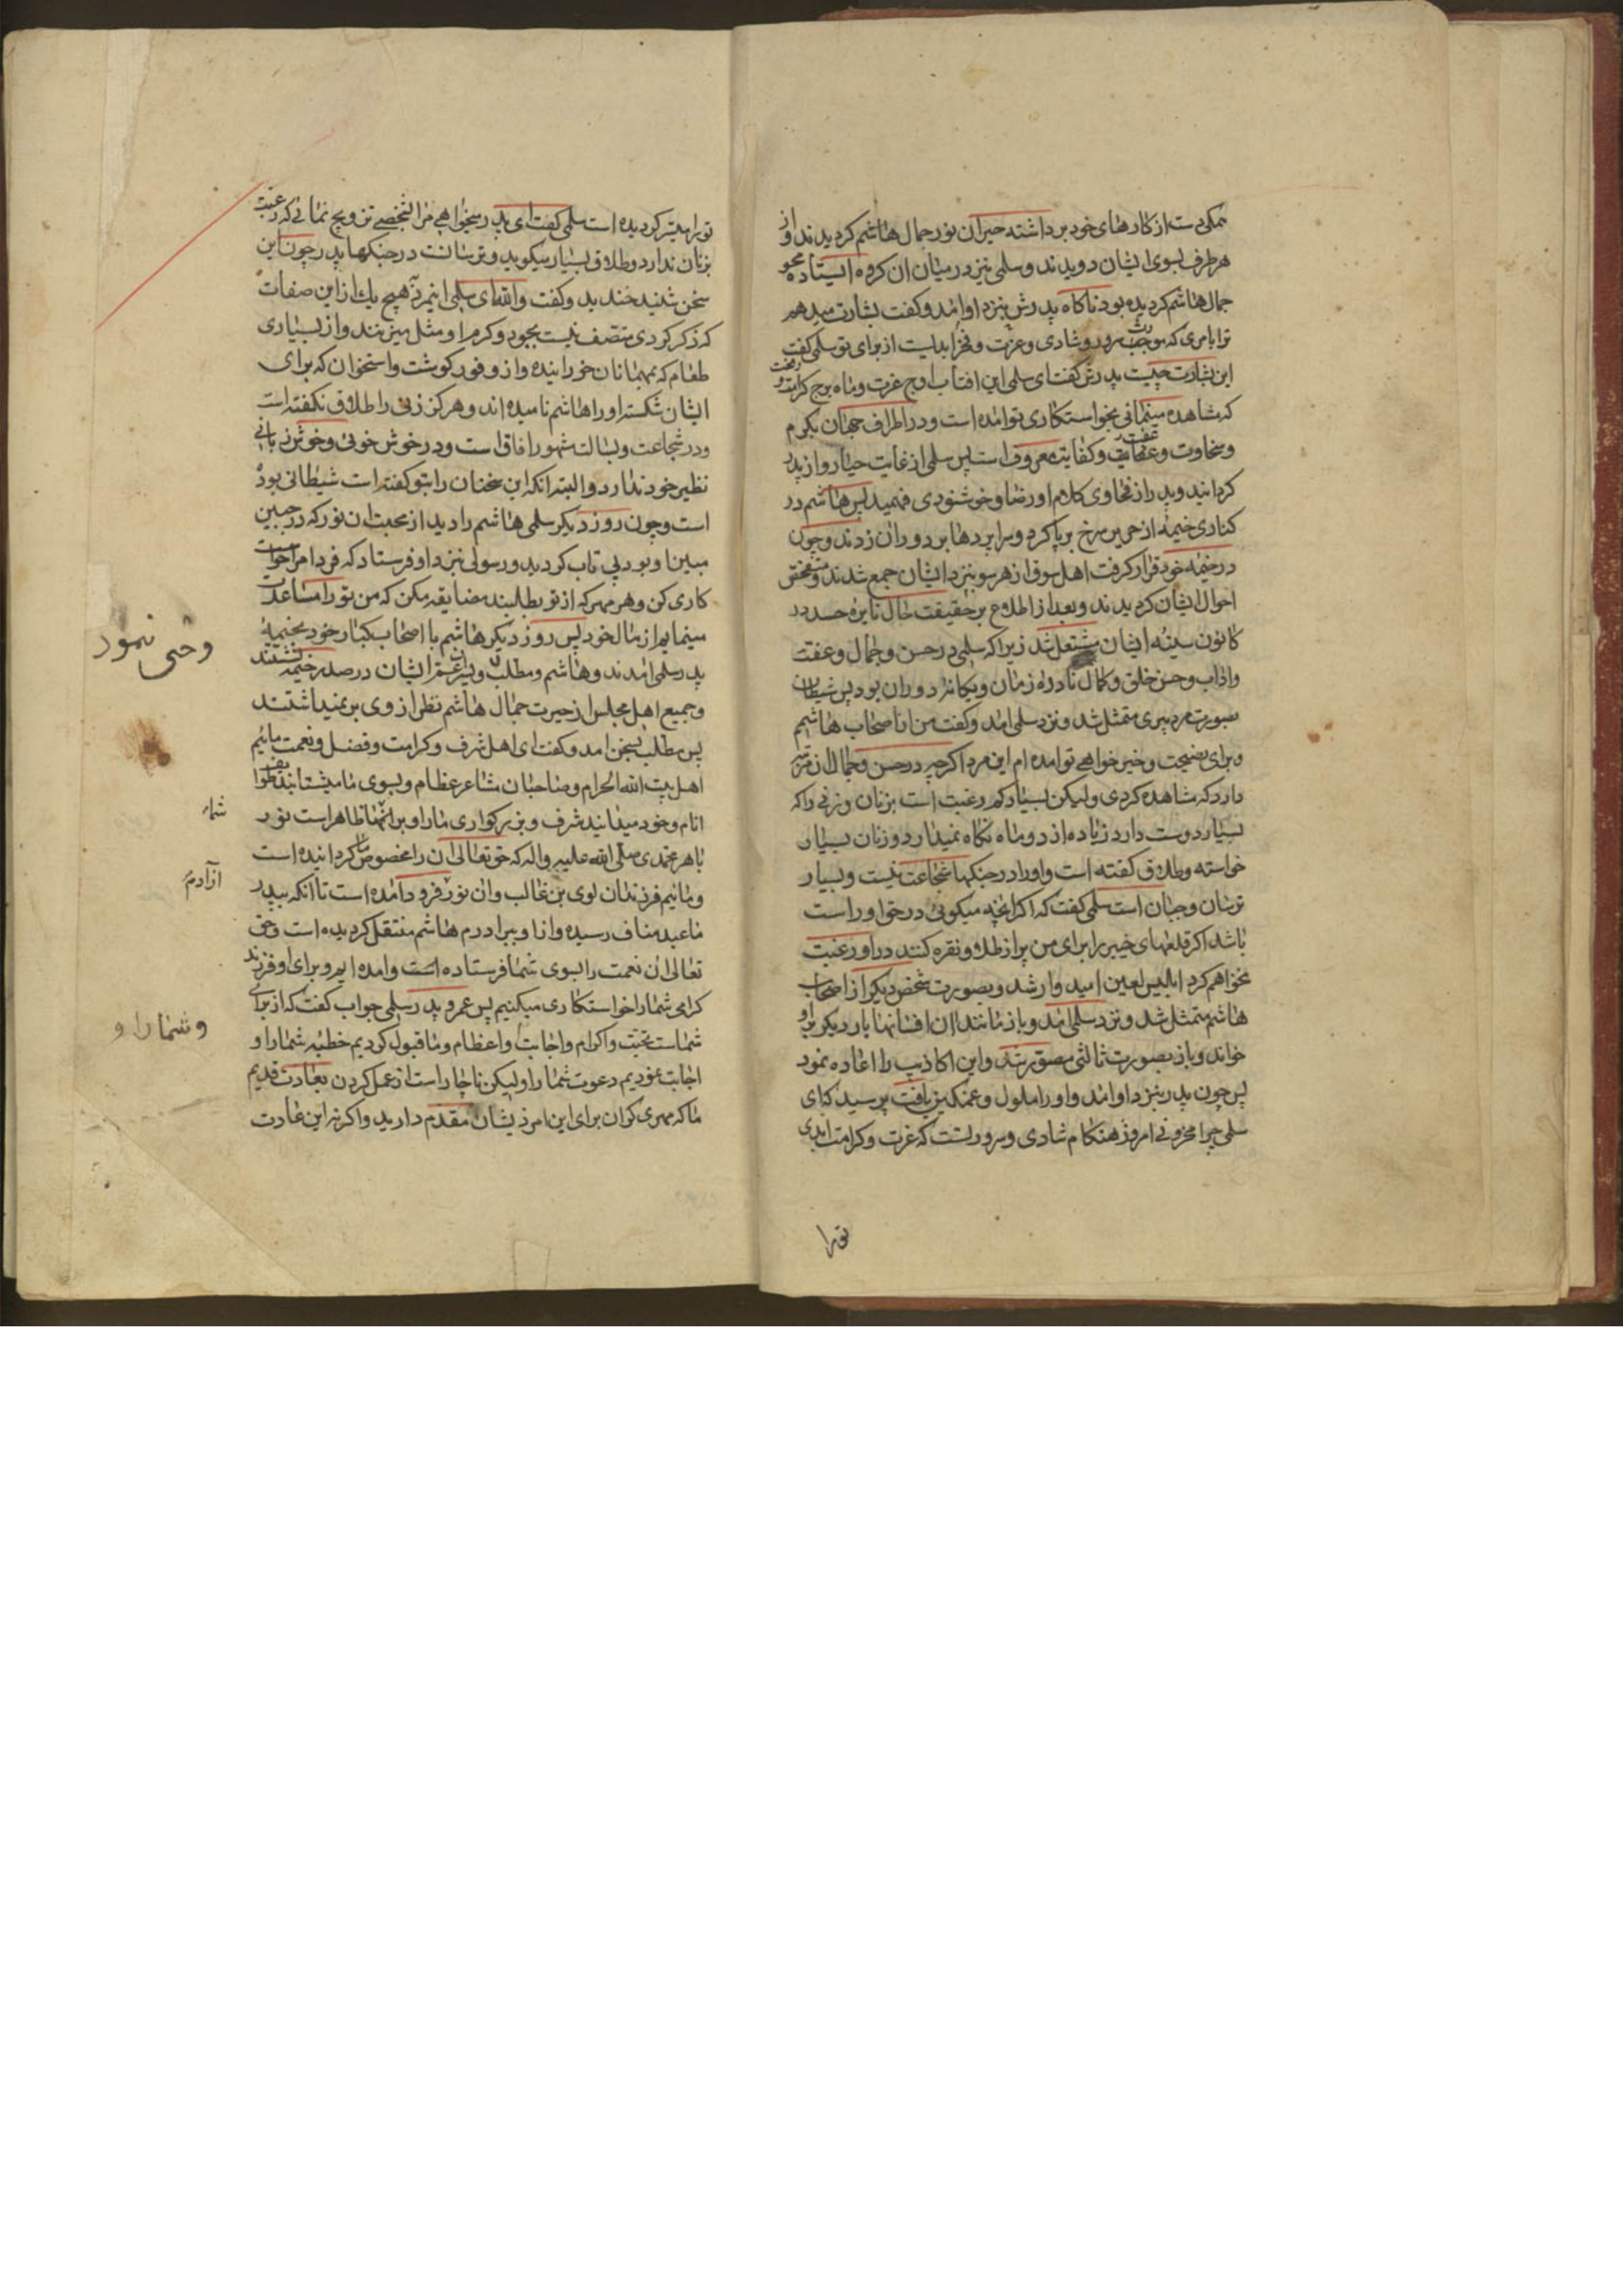 همکی دست از کارهای خود برداشته حیران نور جمال هاشم کردیدند و از
هر طرف بسوی ایشان دویدند و سلمی نیز در میان ان کروه ایستاده محو
جمال هاشم کردیده بود ناکاه پدرش بنزد او امد و کفت بشارت میدهم
ترا بامری که موجب سرور و شادی و عزت و فخر ابدیست از برای تو سلمی کفت
این بشارت چیست پدرش کفت ای سلمی این افتاب اوج عزت و ماه برج کرامت
که مشاهده مینمائی بخواستکاری تو امده است و در اطراف جهان بکرم
و سخاوت و عفت و کفایت معروف است پس سلمی از غایت حیا رو از پدر
کردانید و پدر از فحاوی کلام او رضا و خوشنودی فهمید پس هاشم در
کناری خیمه از حریر سرخ برپا کرد و سراپردها بر دور ان زدند و چون
در خیمه خود قرار کرفت اهل سوق از هر سو بنزد ایشان جمع شدند و متفحص
احوال ایشان کردیدند و بعد از اطلاع بر حقیقت حال نایره حسد در
کانون سینه ایشان مشتعل شد زیرا که سلمی در حسن و جمال و عفت
و اداب و حسن خلق و کمال نادره زمان و یکانه دوران بود پس شیطان
بصورت مرد پیری متمثل شد و نزد سلمی امد و کفت من از اصحاب هاشم
و برای نصیحت و خیر خواهی تو امده ام این مرد اکرچه در حسن و جمال ان مرتبه
دارد که مشاهده کردی ولیکن بسیار کم رغبت است بزنان و زنی را که
بسیار دوست دارد زیاده از دو ماه نکاه نمیدارد و زنان بسیار
خواسته و طلاق کفته است و او را در جنکها شجاعت نیست و بسیار
ترسان و جبان است سلمی کفت که اکر انچه میکوئی در حق او راست
باشد اکر قلعهای خیبر را برای من پر از طلا و نقره کنند در او رغبت
نخواهم کرد ابلیس لعین امیدوار شد و بصورت شخص دیکر از اصحاب
هاشم متمثل شد و نزد سلمی امد و باز مانند ان افسانها بار دیکر بر او
خواند و باز بصورت ثالثی مصور شد و این اکاذیب را اعاده نمود
پس چون پدر بنزد او امد و او را ملول و غمکین یافت پرسید که ای
سلمی چرا محزونی امروز هنکام شادی و سرور تست که عزت و کرامت ابدی
تورا
تورا میسر کردیده است سلمی کفت ای پدر میخواهی مرا بشخصی تزویج نمائی که رغبت
بزنان ندارد و طلاق بسیار میکوید و ترسانست در جنکها پدر چون این
سخن شنید خندید و کفت والله ای سلمی اینمرد بهیچ یک از این صفات
که ذکر کردی متصف نیست بجود و کرم او مثل میزنند و از بسیاری
طعام که بمهمانان خورانیده و از وفور کوشت و استخوان که برای
ایشان شکسته او را هاشم نامیده اند و هرکز زنی را طلاق نکفته است
و در شجاعت و بسالت مشهور افاق است و در خوش خوئی و خوش زبانی
نظیر خود ندارد و البته انکه این سخنان را بتو کفته است شیطانی بوده
است و چون روز دیکر سلمی هاشم را دید از محبت ان نور که در جبین
مبین او بود بی تاب کردید و رسولی بنزد او فرستاد که فردا مرا خواست
کاری کن و هر مهر که از تو بطلبند مضایقه مکن که من تو را مساعدت
مینمایم از مال خود پس روز دیکر هاشم با اصحاب کبار خود بخیمه
پدر سلمی امدند و هاشم و مطلب و پسران عم ایشان در صدر خیمه نشستند
و جمیع اهل مجلس از حیرت جمال هاشم نظر از وی برنمیداشتند
پس مطلب بسخن امد و کفت ای اهل شرف و کرامت و فضل و نعمت مائیم
اهل بیت الله الحرام و صاحبان مشاعر عظام و بسوی ما میشتابند طوایف
انام و خود میدانید شرف و بزرکواری ما را و بر شما ظاهر است نور
باهر محمدی صلی الله علیه و اله که حق تعالی ان را مخصوص ما کردانیده است
و مائیم فرزندان لوی بن غالب و ان نور فرود امده است تا انکه بپدر
ما عبد مناف رسیده و از او ببرادرم هاشم منتقل کردیده است و حق
تعالی ان نعمت را بسوی شما فرستاده است و امده ایم و برای او فرزند
کرامی شما را خواستکاری میکنیم پس عمرو پدر سلمی جواب کفت که از برای
شماست تحیت و اکرام و اجابت و اعظام و ما قبول کردیم خطبه شما را و
اجابت نمودیم دعوت شما را ولیکن ناچار است از عمل کردن بعادت قدیم
ما که مهری کران برای این امر ذیشان مقدم دارید و اکر نه این عادت
نمود
از آدم
و شما را و